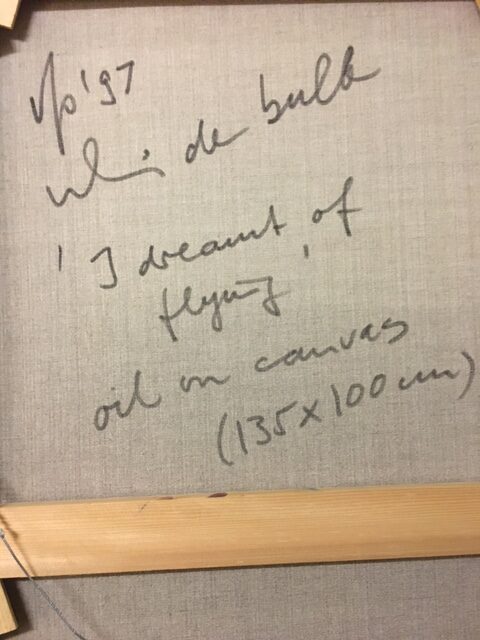 '97
de bulb
'I dreamt of
flying'
oil on canvas
(135x100cm)